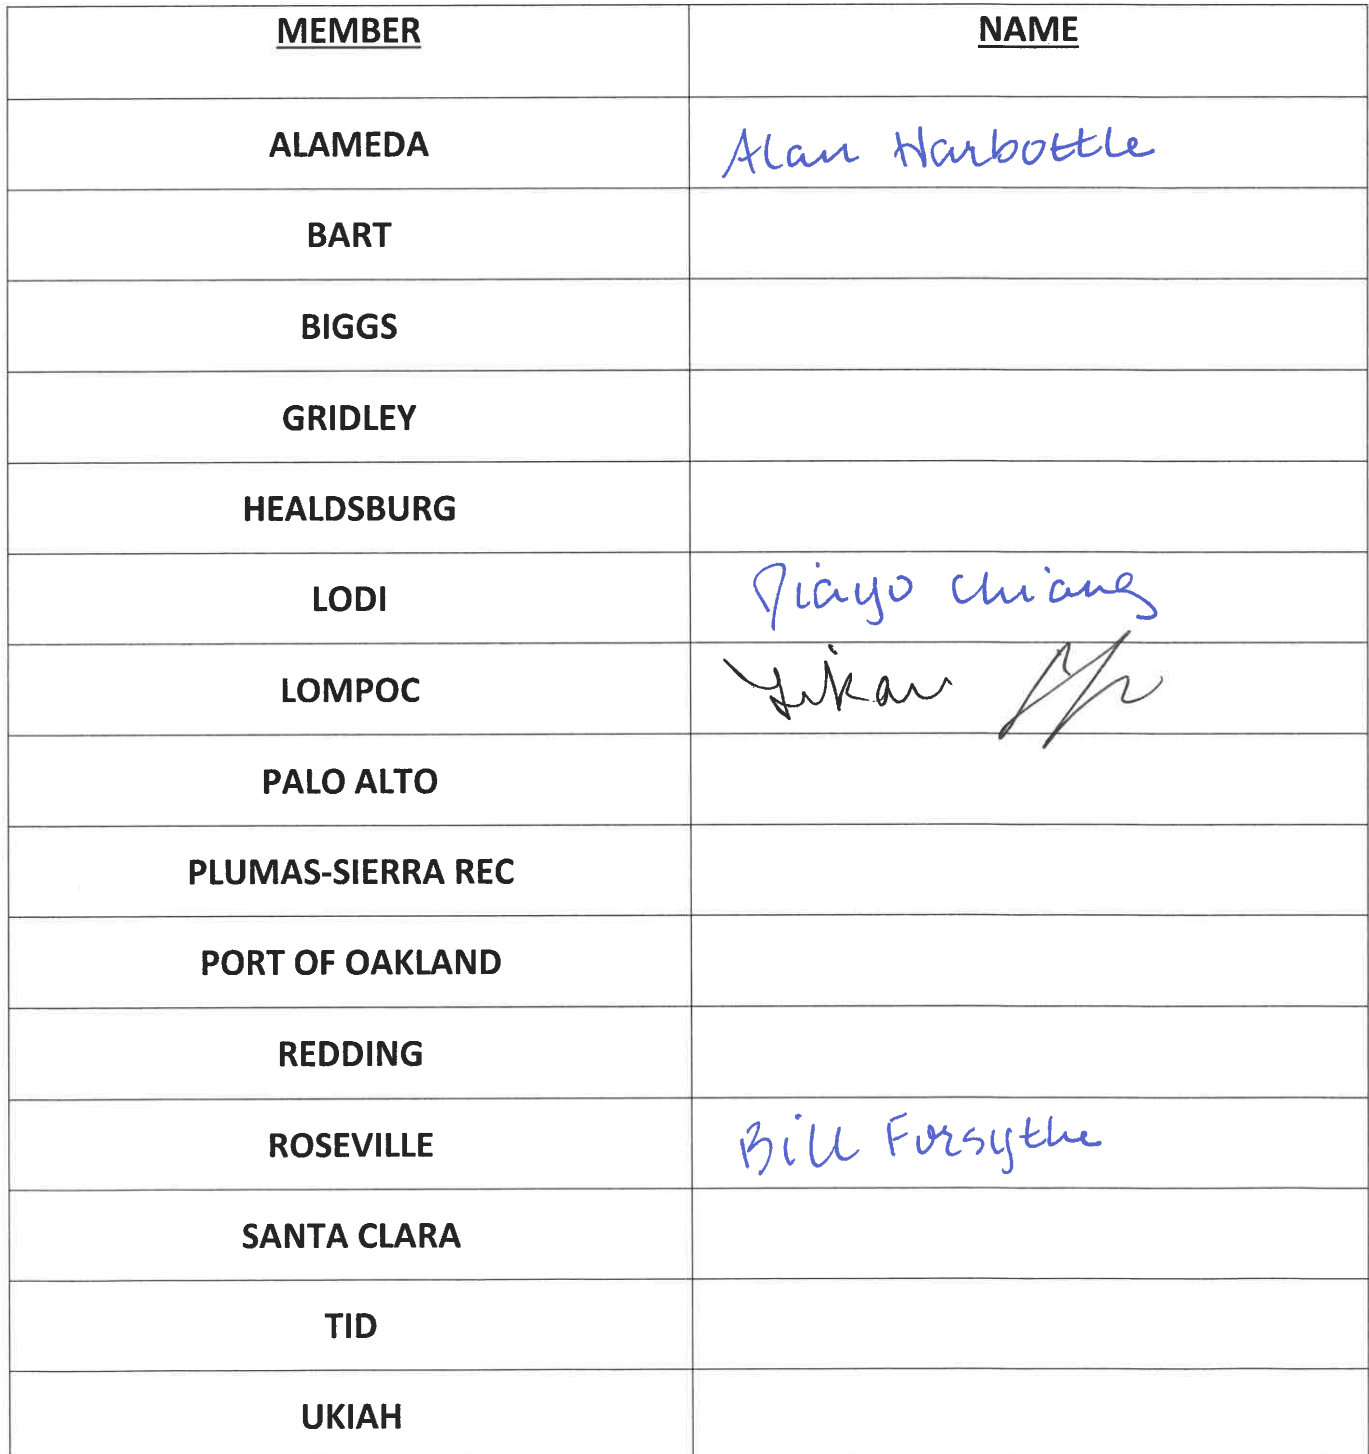 MEMBER NAME
ALAMEDA Alan Harbottle
BART
BIGGS
GRIDLEY
HEALDSBURG
LODI Jiayo Chiang
LOMPOC
PALO ALTO
PLUMAS-SIERRA REC
PORT OF OAKLAND
REDDING
ROSEVILLE Bill Forsythe
SANTA CLARA
TID
UKIAH